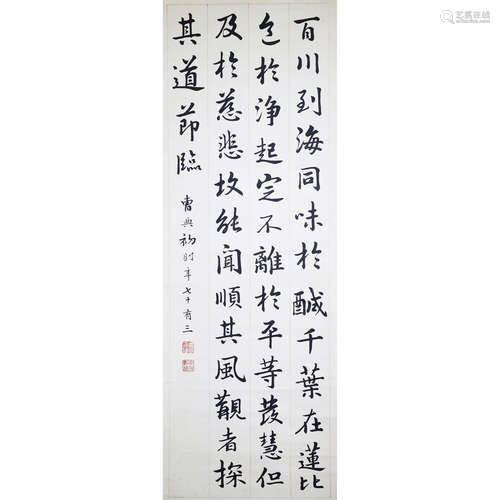 百川到海同味於醎千葉在蓮比
色於淨起定不離於平等發慧但
及於慈悲故能聞順其風觀者探
其道 節臨
曹典初時年七十有三